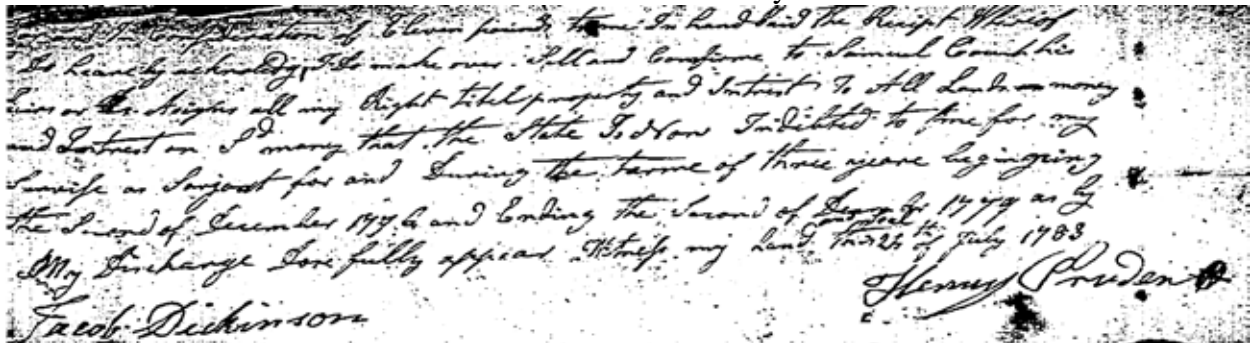 Consideration of Eleven pound to me In hand paid the Recipt Wherof
Is heareby acknoledg I Do make over Sell and Confirme to Samuel Couch his
heirs or Asigns all my Right titel property and Intrest To All Lands or money
and Intrest on Sd money that the State Is Now Indibted to me for my
Servise as Sarjant for and During the tarme of three yeare begining
the Second of December 1776 and Ending the Second of Decembr 1779 as by
My Discharge Dore fully appear Witness my hand this 24th of July 1783
Henry Pruden
Jacob Dickinson